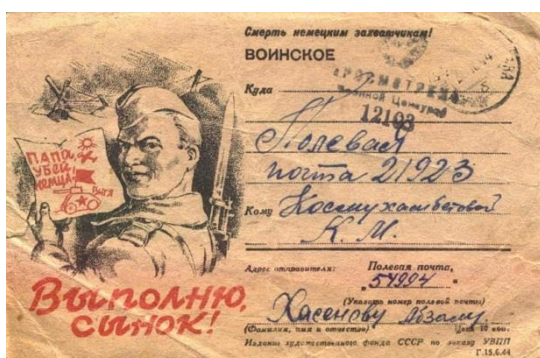 Смерть немецким захватчикам!
ВОИНСКОЕ
Куда
ПРОСМОТРЕНО
Военной Цензурой
12103
Полевая
почта 21923
Кому Космухамбетовой
К. М.
ПАПА,
УБЕЙ
НЕМЦА!
ВИТЯ
Адрес отправителя: Полевая почта,
54994
(Указать номер полевой почты)
Хасенову Абзалу
(Фамилия, имя и отчество) Цена 10 коп.
Издание художественного фонда СССР по заказу УВПП
Г.15.6.44
ВЫПОЛНЮ,
СЫНОК!